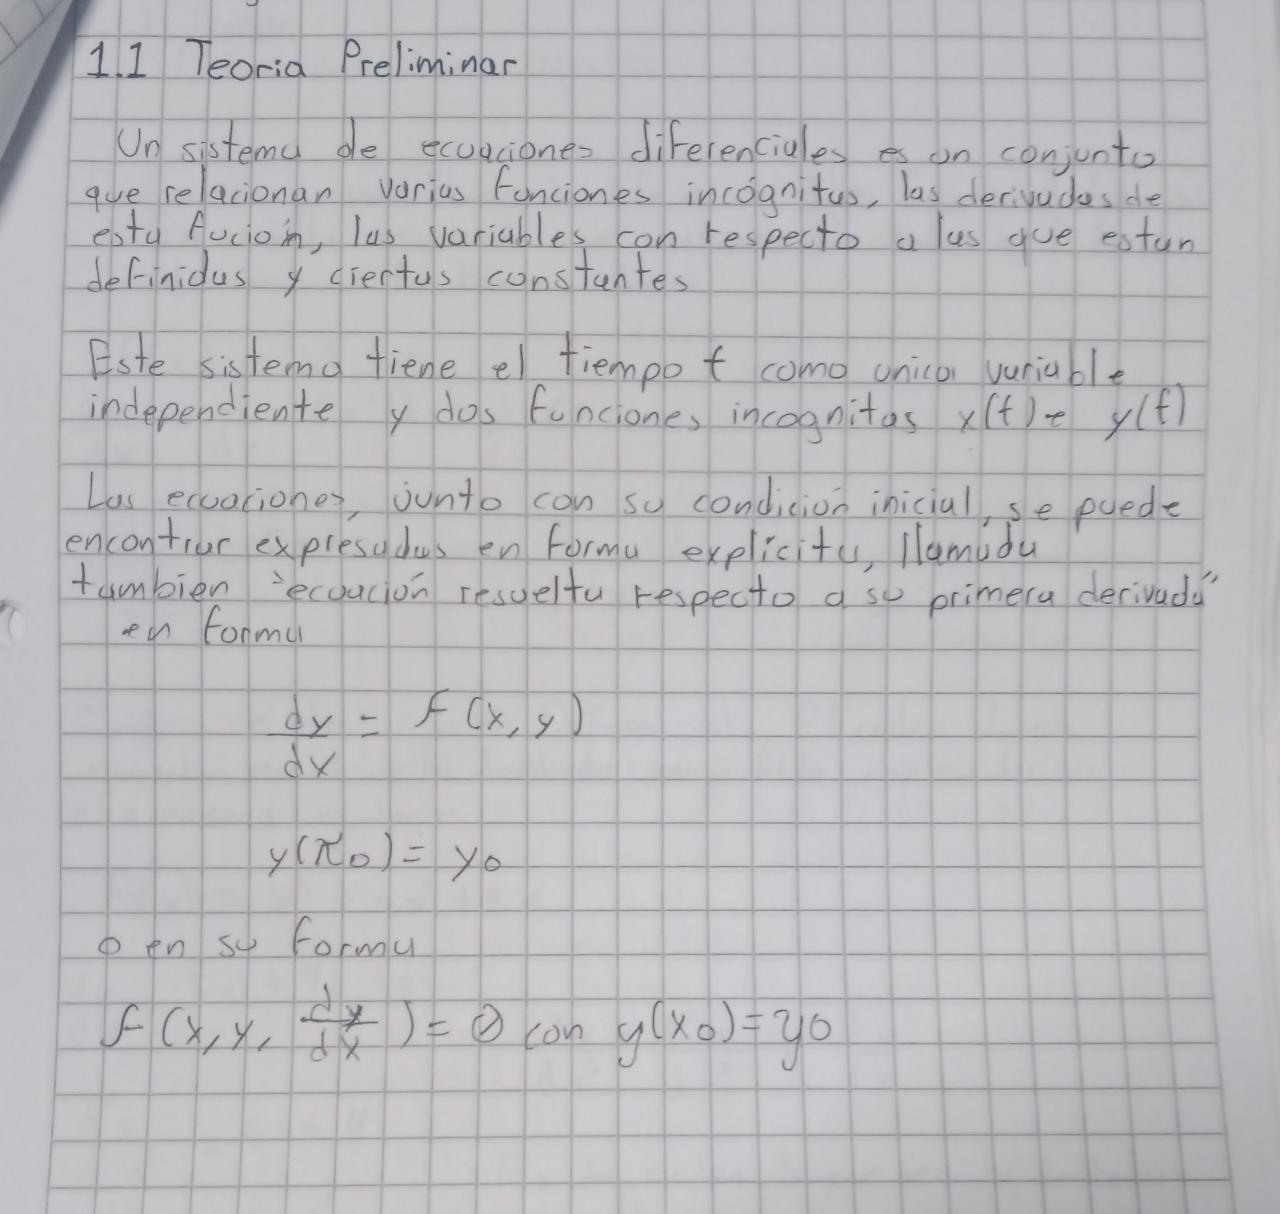 1.1 Teoria Preliminar
Un sistema de ecuaciones diferenciales es un conjunto
que relacionan varias funciones incógnitas, las derivadas de
esta fución, las variables con respecto a las que estan
definidas y ciertas constantes
Este sistema tiene el tiempo t como unica variable
independiente y dos funciones incognitas x(t) e y(t)
Las ecuaciones, junto con su condición inicial, se puede
encontrar expresadas en forma explicita, llamada
tambien "ecuación resuelta respecto a su primera derivada"
en forma
dy/dx = f(x,y)
y(π0) = y0
o en su forma
f(x,y, dy/dx) = 0 con y(x0)=y0